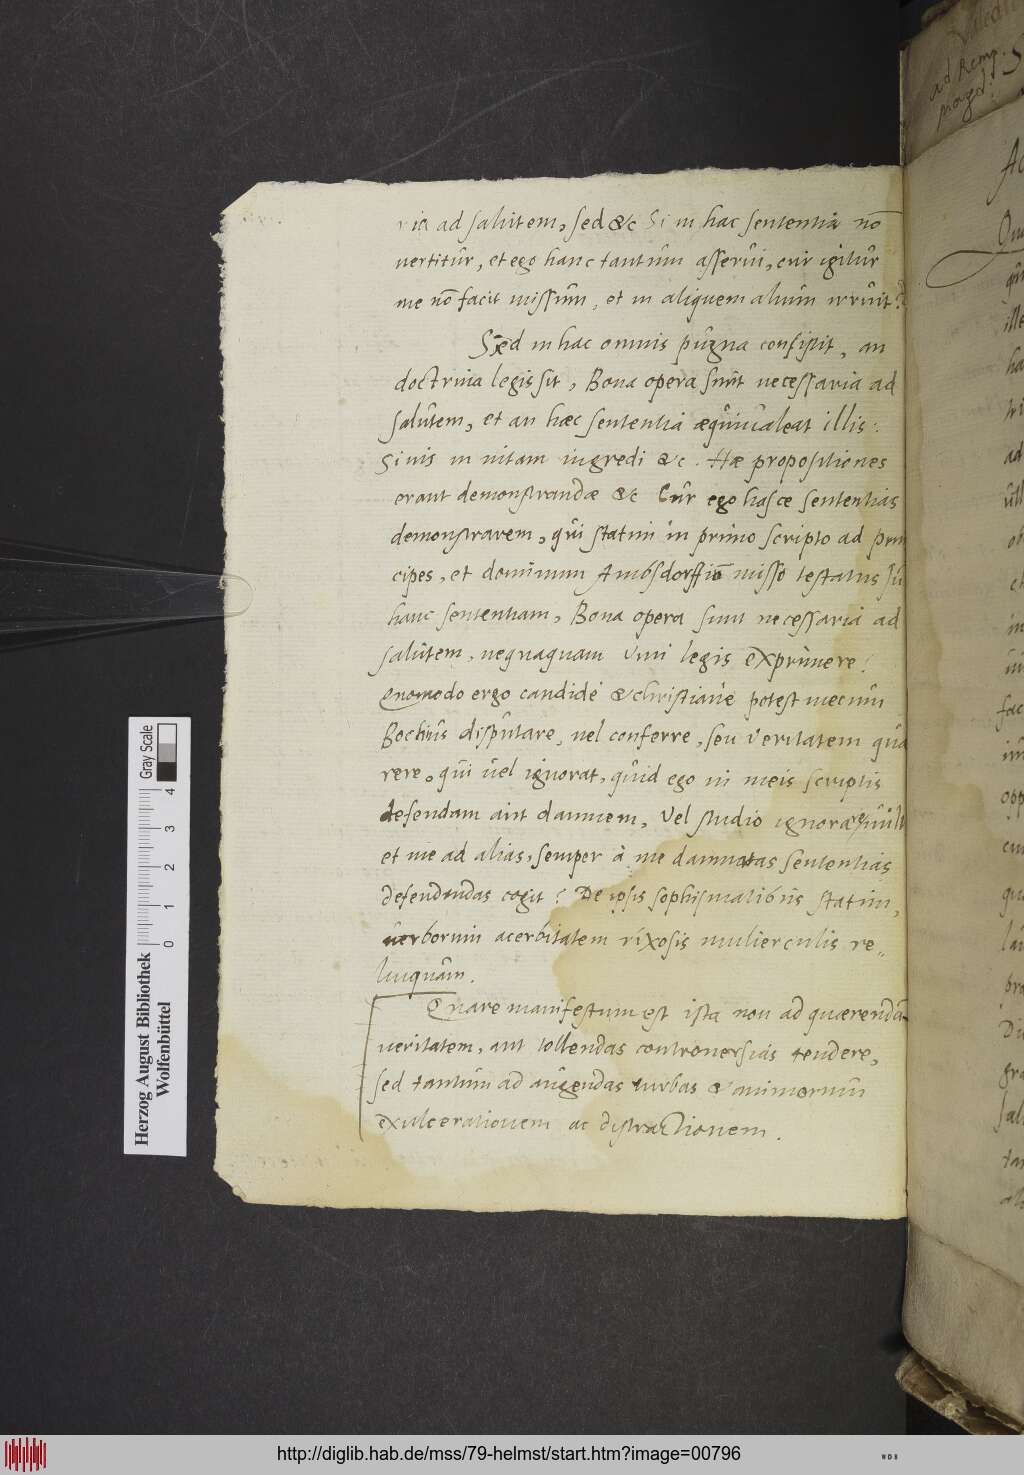 ria ad salutem, sed &c Si in hac sententia nō
uertitur, et ego hanc tantum asserui, cur igitur
me nō facit missum, et in aliquem alium irruit?
Sed in hac omnis pugna consistit, an
doctrina legis sit, Bona opera sunt necessaria ad
salutem, et an hæc sententia æquiualeat illis:
Si uis in uitam ingredi &c. Hæ propositiones
erant demonstrandæ &c Cur ego hasce sententias
demonstrarem, qui statim in primo scripto ad prin
cipes, et dominum Ambsdorffiū misso testatus su
hanc sententiam, Bona opera sunt necessaria ad
salutem, nequaquam uim legis exprimere?
Quomodo ergo candidè & christianè potest mecum
disputare, uel conferre, seu ueritatem quæ
rere, qui uel ignorat, quid ego in meis scriptis
defendam aut damnem, Vel studio
et me ad alias, semper à me damnatas sententias
defendendas cogit? De ipsis sophismatibus statim,
uerborum acerbitatem rixosis mulierculis re„
linquam.
Quare manifestum est ista non ad quærendā
ueritatem, aut tollendas controuersias tendere,
sed tantum ad augendas turbas & animorum
exulcerationem ac distractionem.
ad Rem
Gray Scale
0 1 2 3 4
Herzog August Bibliothek
Wolfenbüttel
http://diglib.hab.de/mss/79-helmst/start.htm?image=00796